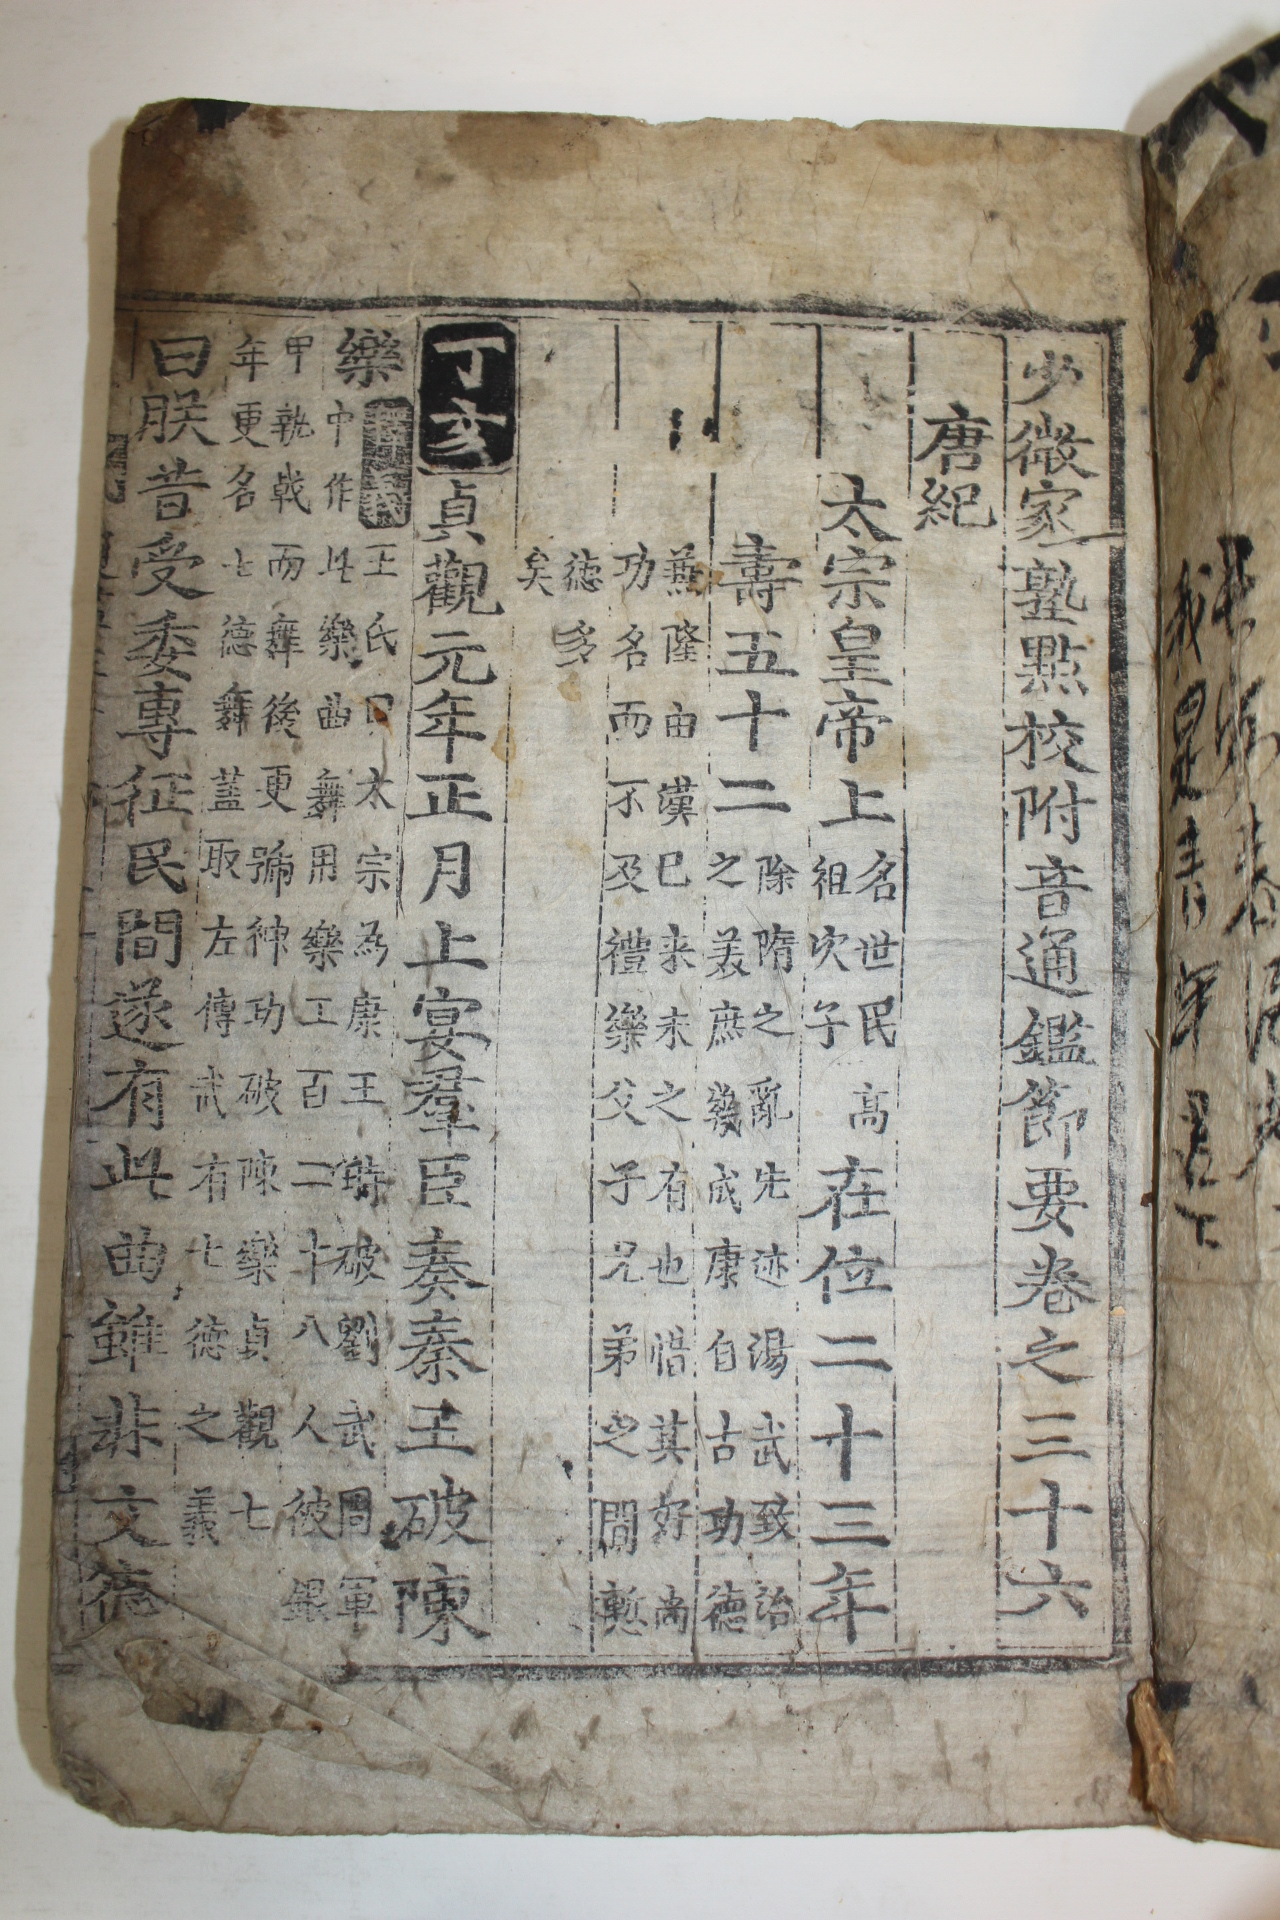 少微家塾點校附音通鑑節要卷之三十六
唐紀
太宗皇帝上
名世民高
祖次子
在位二十三年
壽五十二
除隋之亂先迹湯武致治
之美庶幾成康自古功德
兼隆由漢已来未之有也惜其好高
功名而不及禮樂父子兄弟之間慙
德多
矣
丁亥
貞觀元年正月上宴羣臣奏秦王破陳
樂
王氏曰太宗為康王時破劉武周軍
中作此樂曲舞用樂工百二十八人彼銀
甲執戟而舞後更號神功破陳樂貞觀七
年更名七德舞蓋取左傳武有七德之義
曰朕昔受委專征民間遂有此曲雖非文德